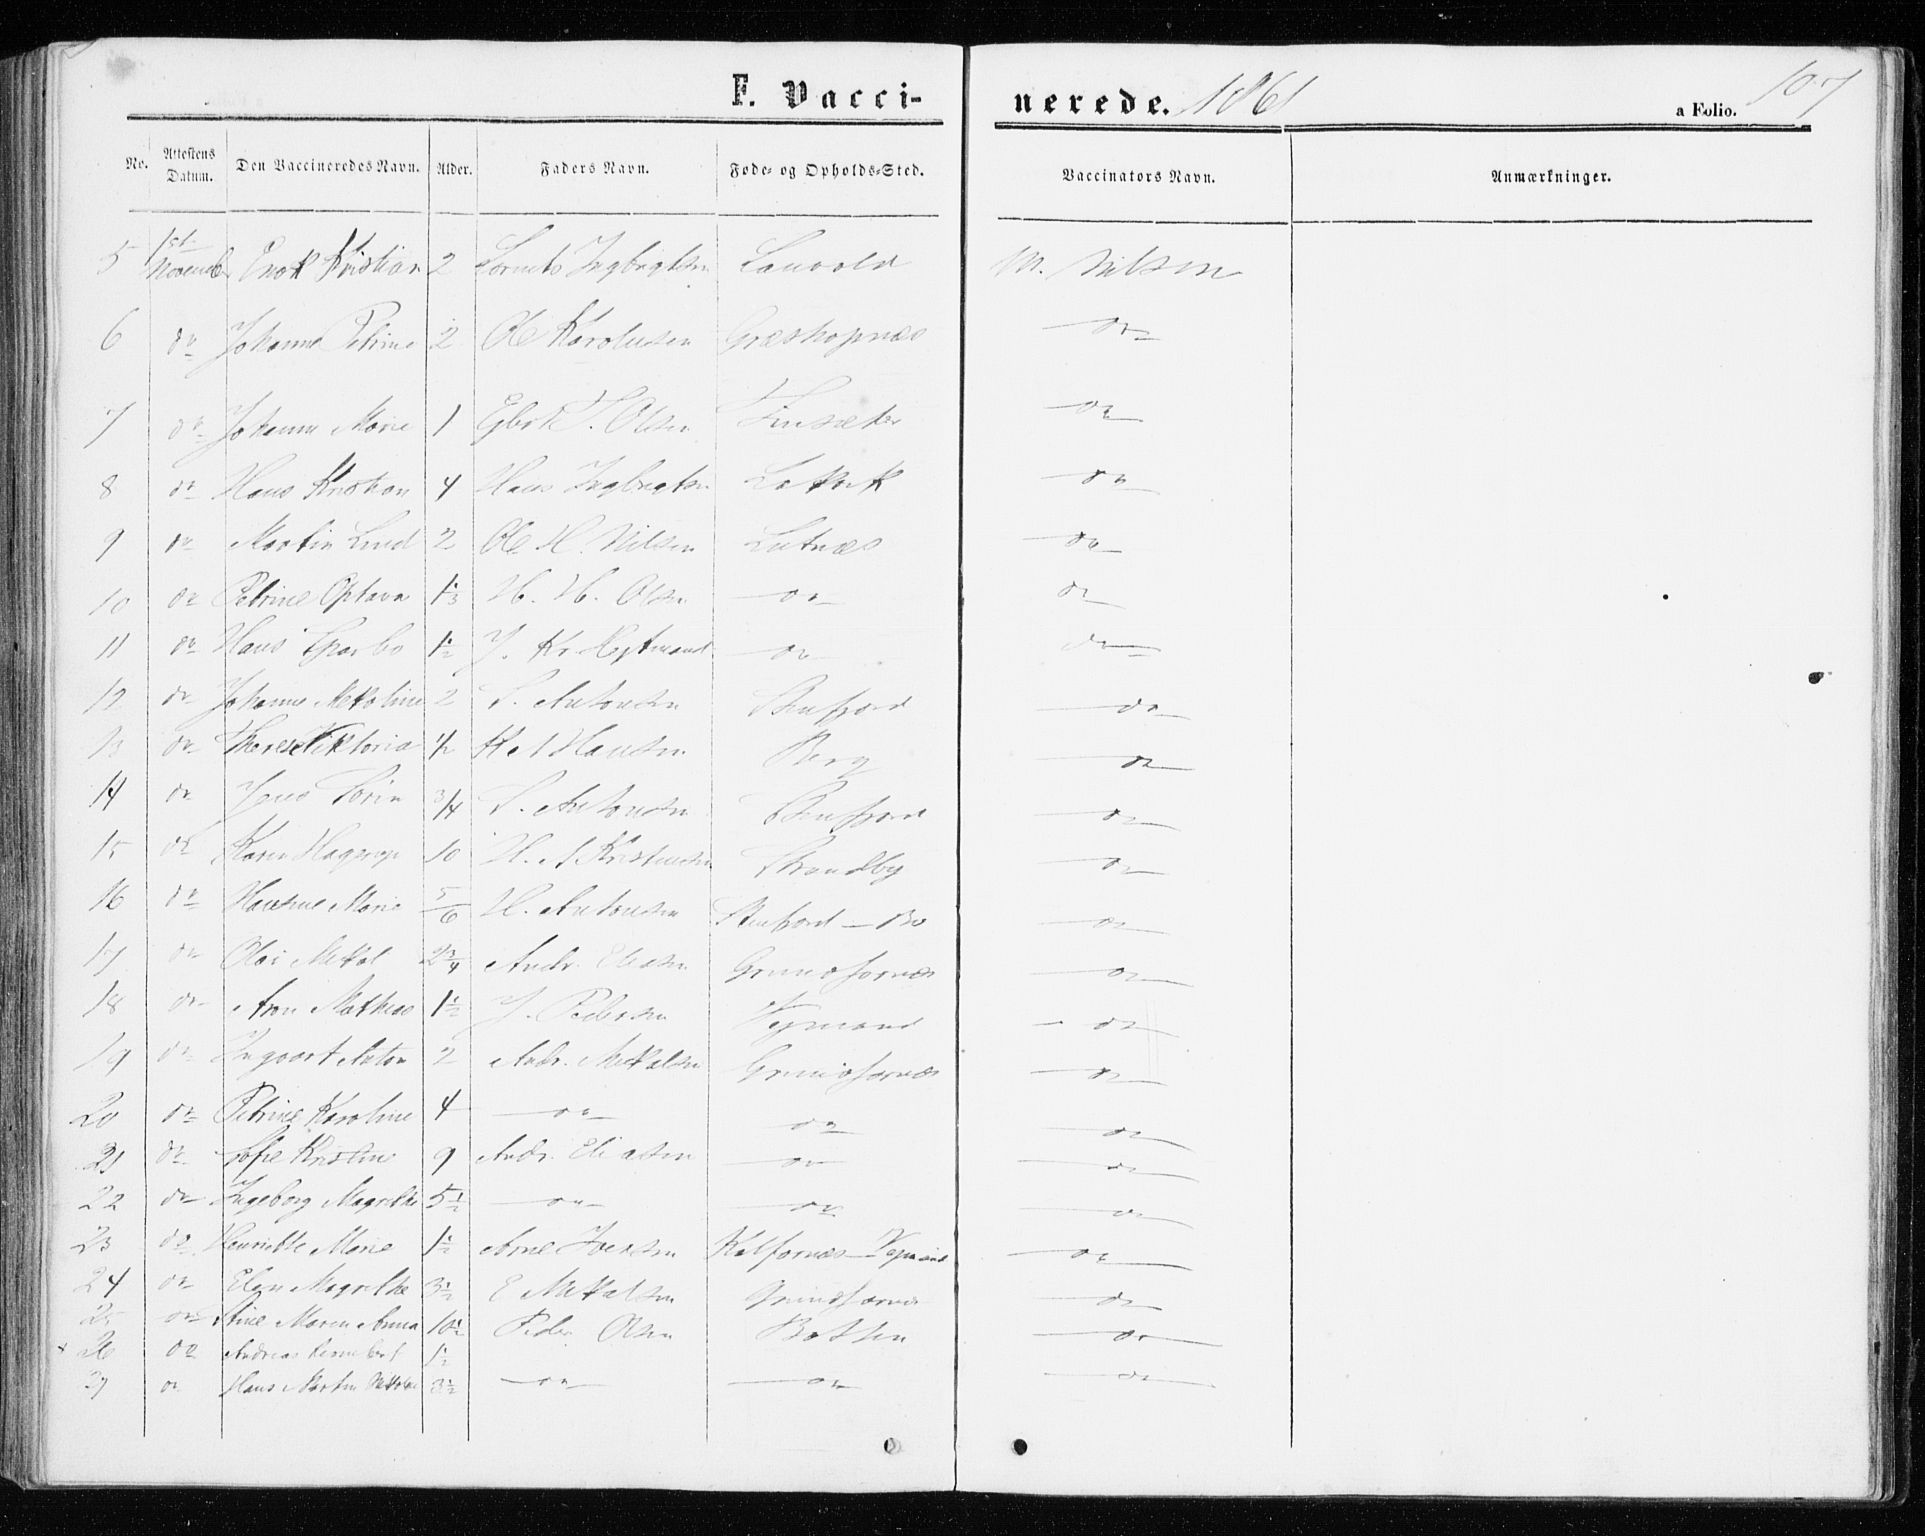 F. Vaccinerede. 1861
a Folio. 107
No. Attestens Datum. Den Vaccineredes Navn. Alder. Faders Navn. Føde- og Opholds-Sted. Vaccinators Navn. Anmærkninger.
5 1st Novemb Enok Kristian 2 Ingbrigtsen Lauvold M. Nilsen
6 do Johanne Petrine 2 Ole Karolusen do
7 do Johanne Marie 1 Olsen Finsæter do
8 do Hans Kristian 4 Hans Ingbrigtsen do
9 do Martin Lind 2 Ole H. Nilsen Lutnæs do
10 do Petrine Optava 1/3 H. H. Olsen do do
11 do Hans Sparbo 1 1/2 J. Kr. Heftmand do do
12 do Johanne Mekoline 2 S. Antonsen Stenfjord do
13 do Therese Viktoria 1/2 Hansen Berg do
14 do Jens Sørin 3/4 S. Antonsen Stenfjord do
15 do Karen Hagerup 10 H. A Kristensen Strandby do
16 do Hansine Marie 5/6 H. Antonsen Stenfjord do
17 do Olai Mekal 2 3/4 Andr. Eliasen Grundfarnæs do
18 do Aron Mathias 1 1/2 J. Pedersen Vejmand do
19 do Ingvart Anton 2 Andr. Mekalsen Grundfarnæs do
20 do Petrine Karoline 4 do do do
21 do Sofie Kristine 9 Andr. Eliasen do do
22 do Ingeborg Magrethe 5 1/2 do do do
23 do Henriette Marie 1 1/2 Arne Iversen Kalfarnæs Vejmand do
24 do Elen Magrethe 3 1/2 E Mekalsen Grundfarnæs do
25 do Stine Maren Anna 10 1/2 Peder Olsen Botten do
26 do Andreas 1 1/2
27 do Hans Martin 3 1/2 do do do